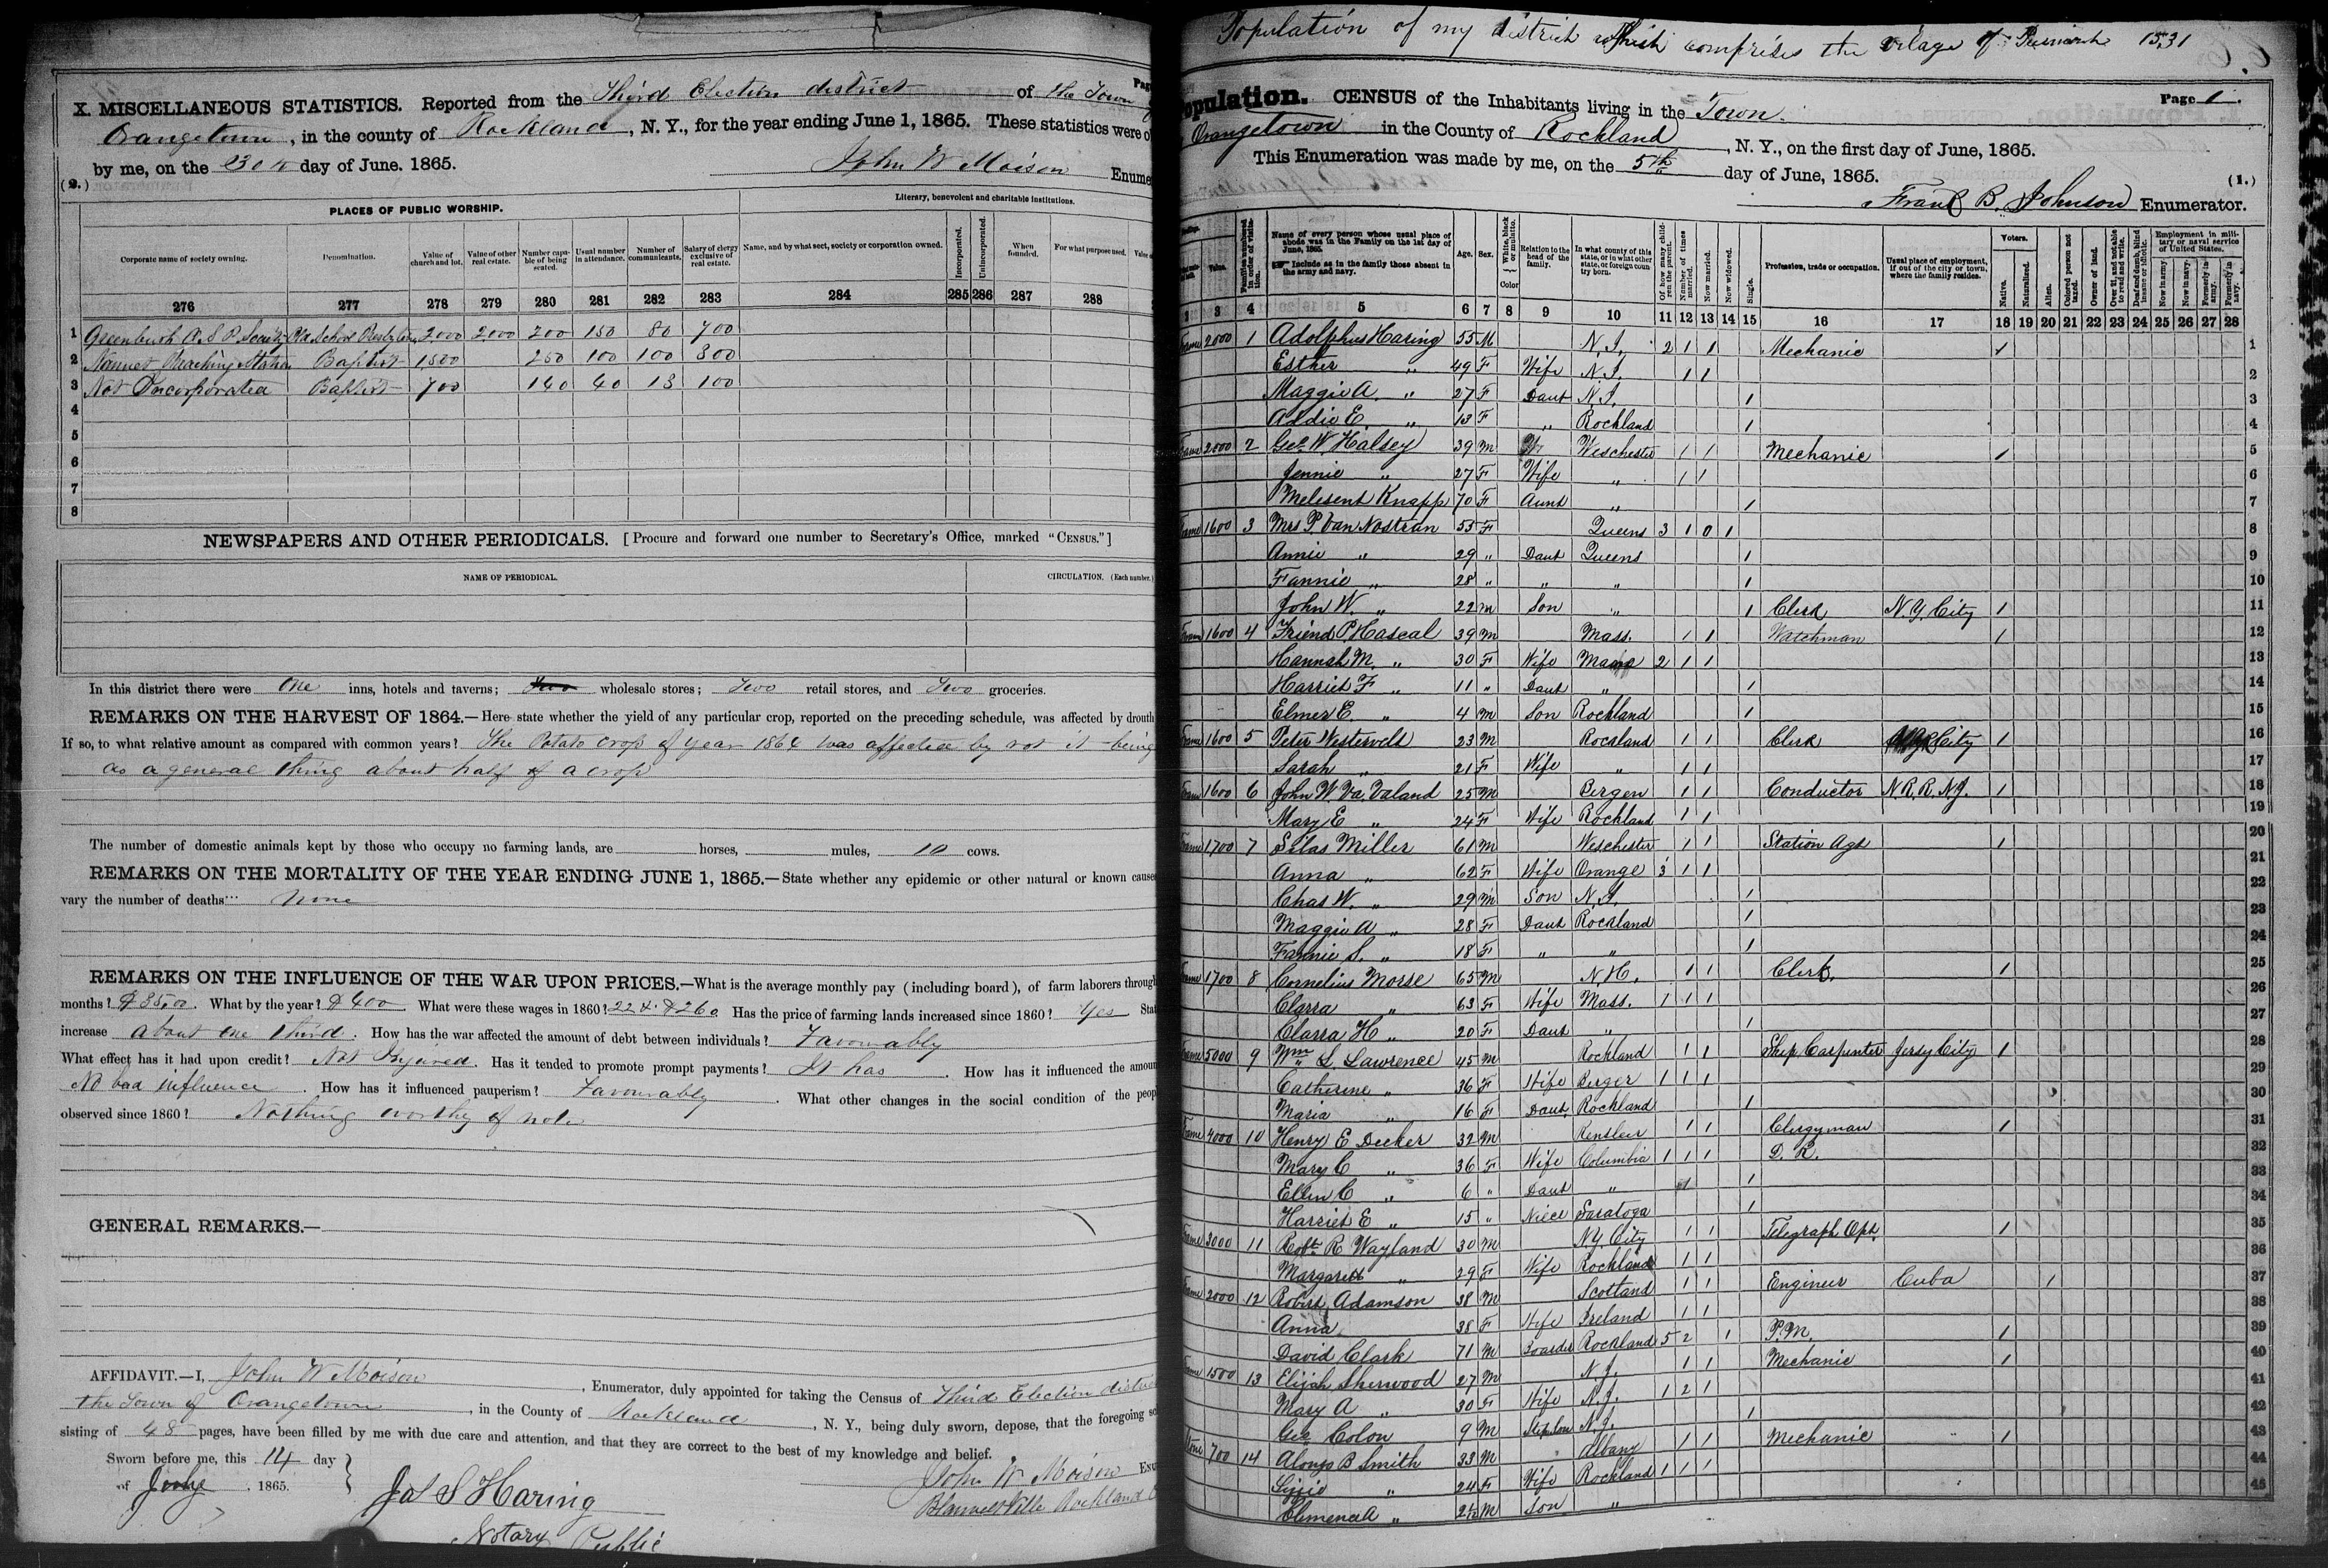 Page
X. MISCELLANEOUS STATISTICS. Reported from the Third Election district of the Town
Orangetown, in the county of Rockland, N. Y., for the year ending June 1, 1865. These statistics were
by me, on the day of June. 1865. John W Moison Enume
(9.)
PLACES OF PUBLIC WORSHIP. Literary, benevolent and charitable institutions.
Corporate name of society owning. Denomination. Value of church and lot. Value of other real estate. Number capable of being seated. Usual number in attendance. Number of communicants. Salary of clergy exclusive of real estate. Name, and by what sect, society or corporation owned. Incorporated. Unincorporated. When founded. For what purpose used.
276 277 278 279 280 281 282 283 284 285 286 287 288
1 Greenbush Old School 2000 2000 200 150 80 700
2 Nanuet Preaching Station Baptist 1500 250 100 100 300
3 Not Incorporated Baptist 700 140 40 13 100
4
5
6
7
8
NEWSPAPERS AND OTHER PERIODICALS. [Procure and forward one number to Secretary's Office, marked "CENSUS."]
NAME OF PERIODICAL. CIRCULATION. (Each number.)
In this district there were One inns, hotels and taverns; wholesale stores; Two retail stores, and Two groceries.
REMARKS ON THE HARVEST OF 1864.—Here state whether the yield of any particular crop, reported on the preceding schedule, was affected by drouth
If so, to what relative amount as compared with common years? The Potato crop of year 1864 was affected by rot it being
as a general thing about half of a crop
The number of domestic animals kept by those who occupy no farming lands, are horses, mules, 10 cows.
REMARKS ON THE MORTALITY OF THE YEAR ENDING JUNE 1, 1865.—State whether any epidemic or other natural or known cause
vary the number of deaths None
REMARKS ON THE INFLUENCE OF THE WAR UPON PRICES.—What is the average monthly pay (including board), of farm laborers through
months? What by the year? $400 What were these wages in 1860? Has the price of farming lands increased since 1860? Yes Stat
increase about one third. How has the war affected the amount of debt between individuals? Favourably
What effect has it had upon credit? Not Injured. Has it tended to promote prompt payments? It has. How has it influenced the amoun
No bad influence. How has it influenced pauperism? Favourably. What other changes in the social condition of the peop
observed since 1860? Nothing worthy of note
GENERAL REMARKS.—
AFFIDAVIT.—I, John W Moison, Enumerator, duly appointed for taking the Census of Third Election district
the Town of Orangetown, in the County of Rockland, N. Y., being duly sworn, depose, that the foregoing
sisting of 48 pages, have been filled by me with due care and attention, and that they are correct to the best of my knowledge and belief.
Sworn before me, this 14 day
of July. 1865.
John W Moison
Jas S Haring
Blauveltville Rockland
Notary Public
Population of my district which comprises the vilage of 1531
Population. CENSUS of the Inhabitants living in the Town. Page 1.
Orangetown in the County of Rockland, N. Y., on the first day of June, 1865.
This Enumeration was made by me, on the 5th day of June, 1865. (1.)
Frank B. Johnson Enumerator.
Value. Families numbered in order of visitation. Name of every person whose usual place of abode was in the Family on the 1st day of June, 1865. Include as in the family those absent in the army and navy. Age. Sex. White, black or mulatto. Color Relation to the head of the family. In what county of this state, or in what other state, or foreign country born. Of how many children the parent. Number of times married. Now married. Now widowed. Single. Profession, trade or occupation. Usual place of employment, if out of the city or town, where the family resides. Voters. Native. Naturalized. Alien. Colored person not taxed. Owner of land. Over 21, and not able to read and write. Deaf and dumb, blind insane or idiotic. Employment in military or naval service of United States. Now in army. Now in navy. Formerly in army. Formerly in navy.
3 4 5 6 7 8 9 10 11 12 13 14 15 16 17 18 19 20 21 22 23 24 25 26 27 28
Frame 2000 1 Adolphus Haring 55 M N.J. 2 1 1 Mechanic 1 1
Esther " 49 F Wife N.J. 1 1 2
Maggie A. " 27 F Daut N.J. 1 3
Addie E. " 13 F " Rockland 1 4
Frame 2000 2 Geo. W. Halsey 39 m Weschester 1 1 Mechanic 1 5
Jennie " 27 F Wife " 1 1 6
Melisent Knapp 70 F Aunt " 1 7
Frame 1600 3 Mrs P. Van Nostran 55 F Queens 3 1 0 1 8
Annie " 29 " Daut Queens 1 9
Fannie " 28 " " " 1 10
John W. " 22 m Son " 1 Clerk N.Y. City 1 11
Frame 1600 4 Friend P. Hascal 39 m Mass. 1 1 Watchman 1 12
Hannah M. " 30 F Wife 2 1 1 13
Harriet F " 11 " Daut " 1 14
Elmer E. " 4 m Son Rockland 1 15
Frame 1600 5 Peter Westervelt 23 M Rockland 1 1 Clerk City 1 16
Sarah " 21 F Wife " 1 1 17
Frame 1600 6 John W. Va. Valand 25 M Bergen 1 1 Conductor N.R.R. N.J. 1 18
Mary E " 24 F Wife Rockland 1 1 19
Frame 1700 7 Silas Miller 61 m Weschester 1 1 Station Agt 1 20
Anna " 62 F Wife Orange 3 1 1 21
Chas W. " 29 m Son N.J. 1 22
Maggie A " 28 F Daut Rockland 1 23
Fannie S. " 18 F " " 1 24
Frame 1700 8 Cornelius Morse 65 M N.H. 1 1 Clerk. 1 25
Clarra " 63 F Wife Mass. 1 1 1 26
Clarra H " 20 F Daut " 1 27
Frame 5000 9 Wm L. Lawrence 45 m Rockland 1 1 Ship Carpenter Jersy City 1 28
Catherine " 36 F Wife Berger 1 1 1 29
Maria " 16 F Daut Rockland 1 30
Frame 4000 10 Henry E Decker 32 M Rensleer 1 1 Clergyman 1 31
Mary C " 36 F Wife Columbia 1 1 1 D. R. 32
Ellen C " 6 " Daut " 1 33
Harriet E " 15 " Niece Saratoga 1 34
Frame 3000 11 Robt R Wayland 30 M N.Y. City 1 1 Telegraph Opt. 1 35
Margaret " 29 F Wife Rockland 1 1 36
Frame 2000 12 Robert Adamson 38 M Scotland 1 1 Engineer Cuba 1 37
Anna 38 F Wife Ireland 1 1 38
David Clark 71 M Boarder Rockland 5 2 1 P.M. 1 39
Frame 1500 13 Elijah Sherwood 27 M N.J. 1 1 Mechanic 1 40
Mary A " 30 F Wife N.J. 1 2 1 41
Geo Colon 9 M Stepson N.J. 1 42
Stone 700 14 Alonzo B Smith 33 M Albany 1 1 Mechanic 1 43
Lizzie " 24 F Wife Rockland 1 1 1 44
A " 2½ M Son " 45